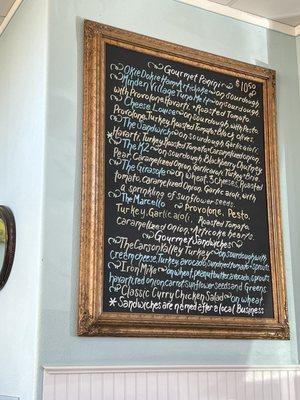 Gourmet Panini $10.50
Okie Dokie Ham Artichoke on sourdough
Minden Village Tuna Melt on sourdough
with Provolone Havarti, Roasted Tomato
Cheese Louise on sourdough with Pesto,
Provolone, Turkey, Roasted Tomato, Black olives
The Sandwich on sourdough Garlic aioli,
* Havarti, Turkey, Roasted Tomato, Caramelized onion
The K2 on sourdough, Blackberry Chutney
Pear, Caramelized Onion, Garlic aioli, Turkey, Brie
The Girasole on wheat, 3 cheeses, Roasted
tomato, caramelized Onion, Garlic aioli, with
a sprinkling of sunflower seeds.
The Marcello Provolone, Pesto,
Turkey, Garlic aioli, Roasted Tomato
caramelized Onion, Artichoke hearts
Gourmet Sandwiches
The Carson Valley Turkey on sourdough with
Creamcheese, Turkey, avocado, sundried tomato, sprouts
Iron Mike on wheat, peanut butter, avocado,
havarti, red onion, carrot, sunflower seeds and Greens
Classic Curry Chicken Salad on wheat
* Sandwiches are named after a local Business